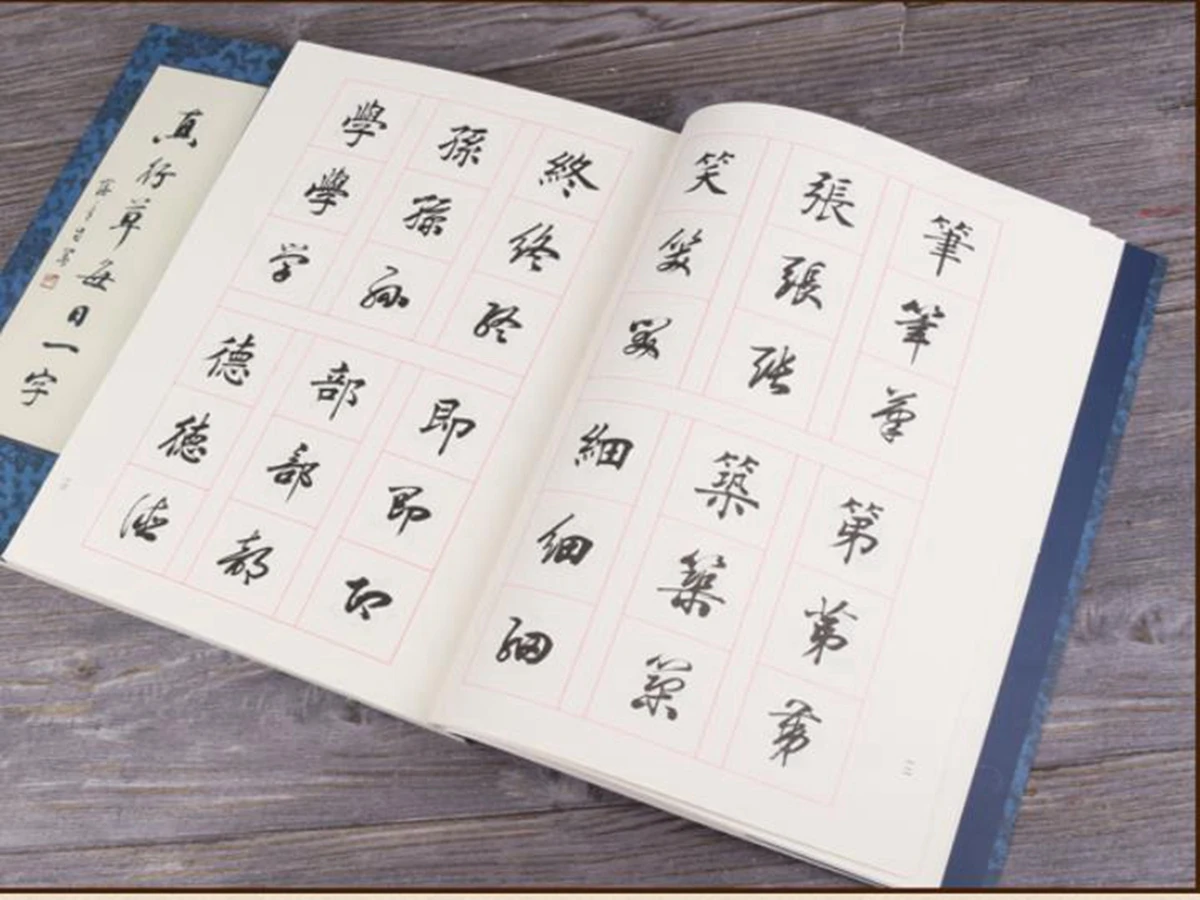 真行草每日一字
筆筆筆
張張張
笑笑笑
第第第
築築築
細細細
終終終
孫孫孫
學學学
即即即
部部部
德德德